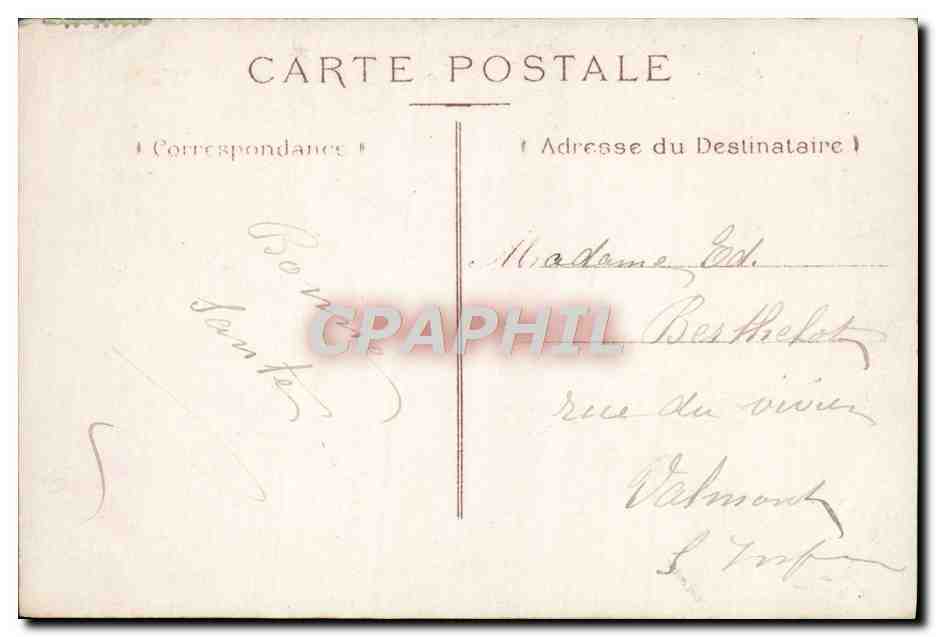 CARTE POSTALE
Correspondance
Bonne
Santé
Adresse du Destinataire
Madame Ed.
Berthelot
rue du vivier
Valmont
S Infre
CPAPHIL